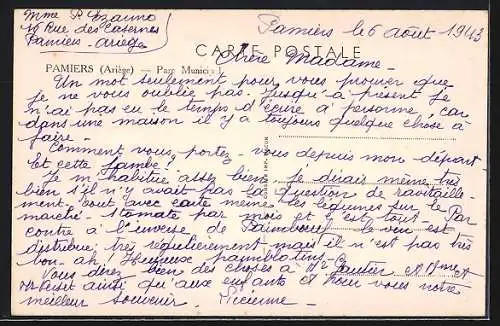 Mme P Izauno
10 Rue des Casernes
Pamiers - Ariège
Pamiers le 6 août 1943
CARTE POSTALE
Chère Madame -
PAMIERS (Ariège) — Parc Munici
Un mot seulement pour vous prouver que
je ne vous oublie pas. Jusqu'à présent je
n'ai pas eu le temps d'écrire à personne, car
dans une maison il y a toujours quelque chose à
faire -
Comment vous portez-vous depuis mon départ
Et cette jambe?
Je m'habitue assez bien. Je dirais même très
bien s'il n'y avait pas la question de ravitaille-
ment - tout avec carte même les légumes sur le
marché - 1 tomate par mois et c'est tout - Par
contre à l'inverse de Paimboeuf le vin est
distribué très régulièrement mais il n'est pas très
bon - ah! Heureux paimblotins -
Vous direz bien des choses à Mme Gautier et
ainsi qu'aux enfants et pour vous notre
meilleur souvenir. Lucienne -